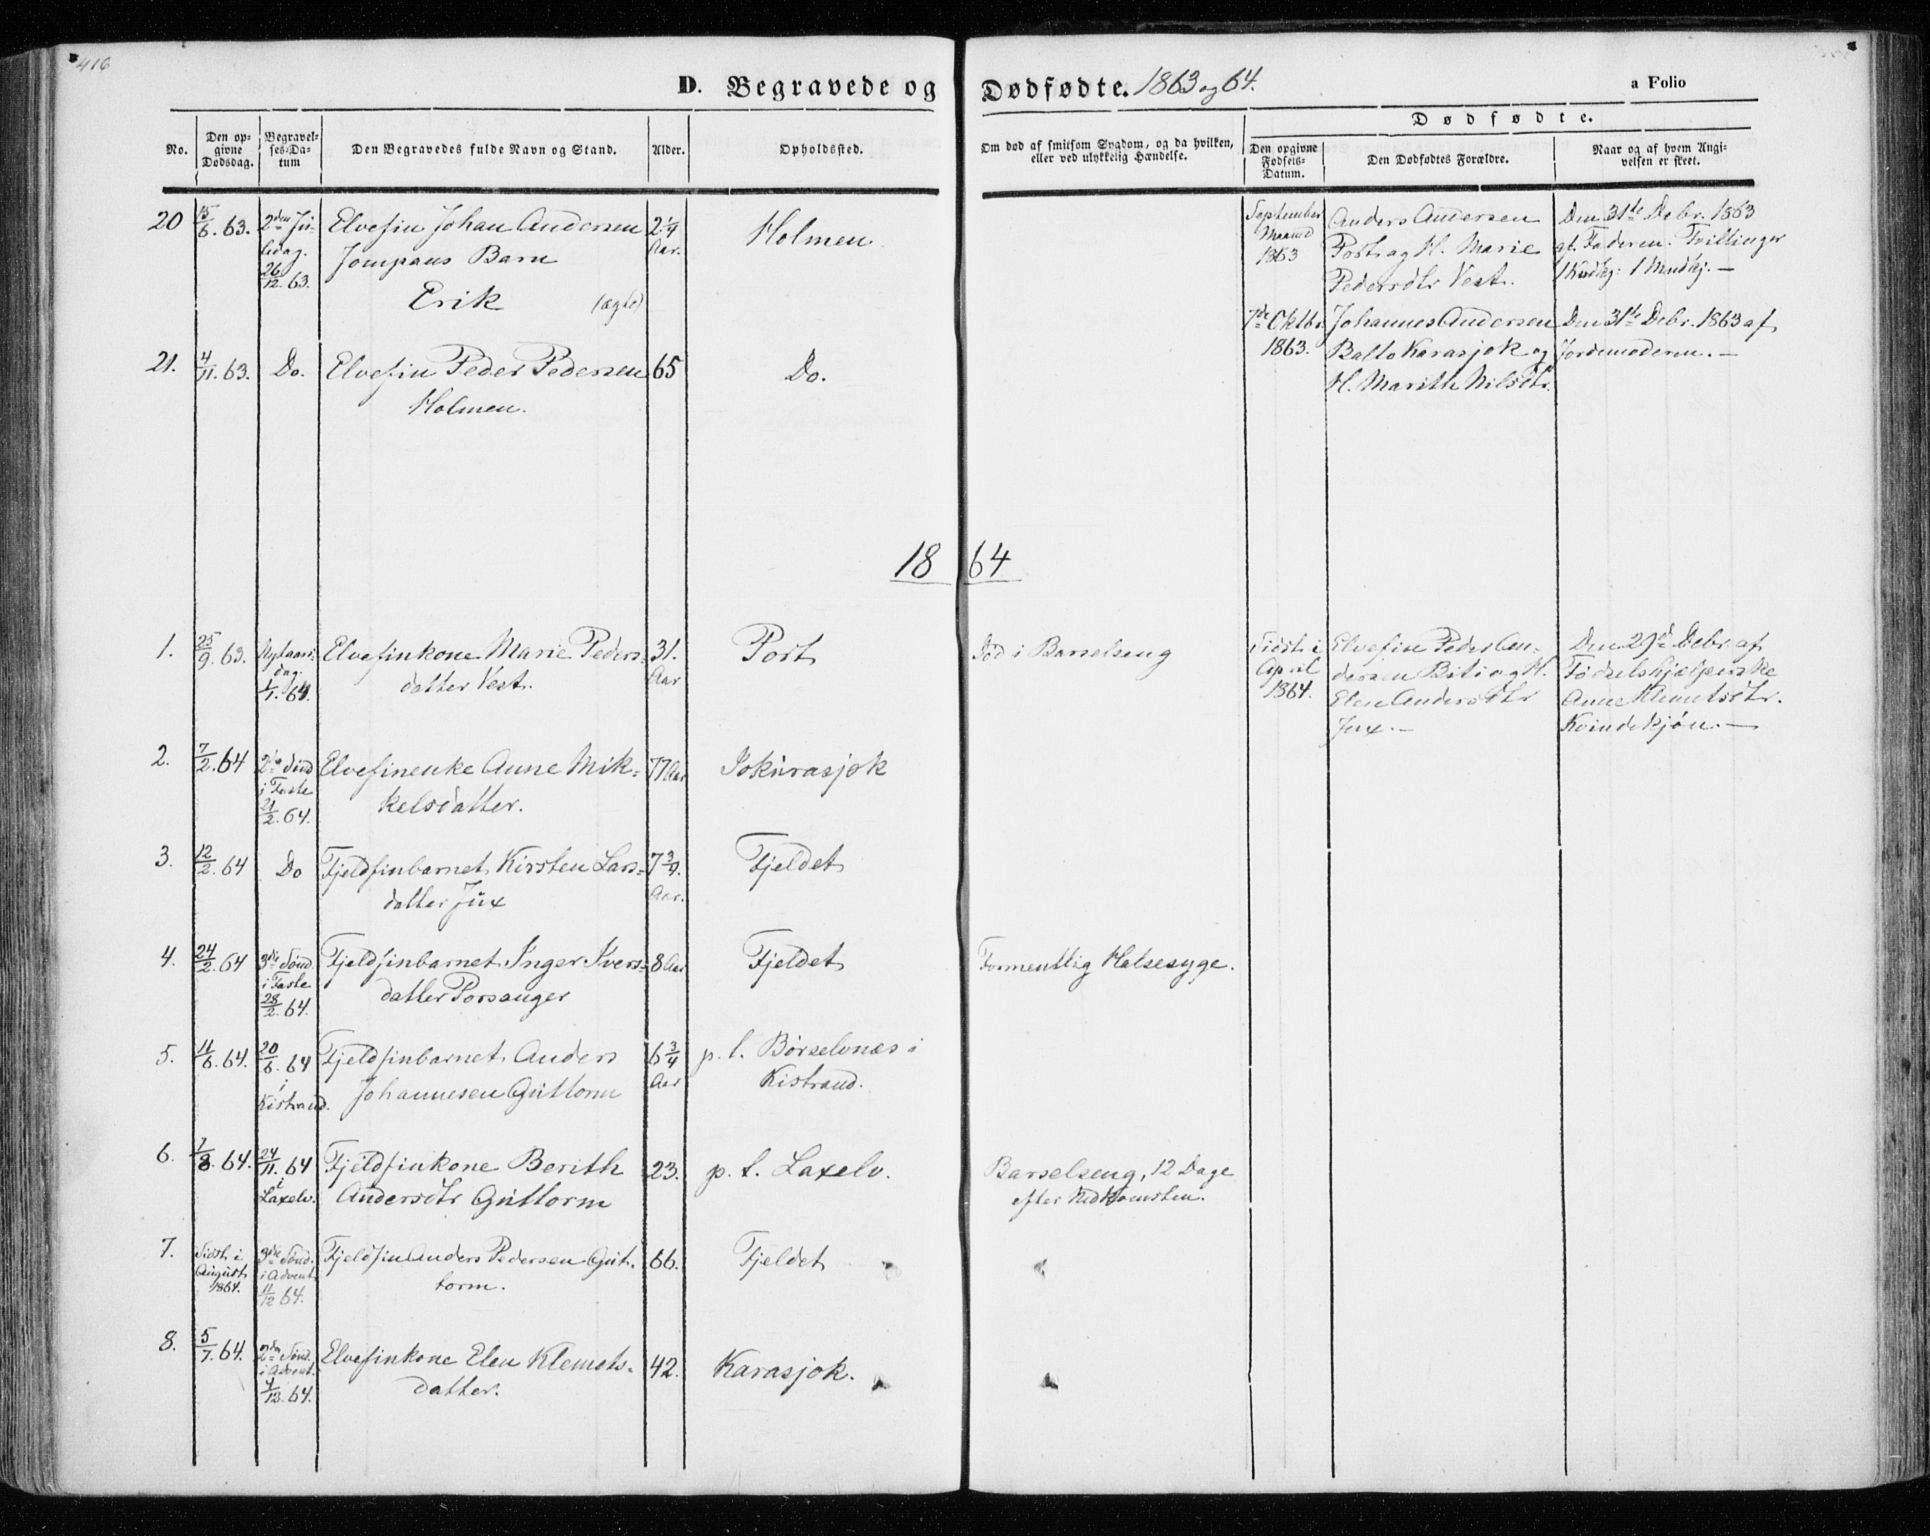 416
D. Begravede og Dødfødte. 1863 og 64.
a Folio
No.
Den op-
givne
Dødsdag.
Begravel-
ses-Da-
tum
Den Begravedes fulde Navn og Stand.
Alder.
Opholdssted.
Om død af smitsom Sygdom, og da hvilken,
eller ved ulykkelig Hændelse.
Dødfødte.
Den opgivne
Fødsels-
Datum.
Den Dødfødtes Forældre.
Naar og af hvem Angi-
velsen er skeet.
20 15/6. 63. 2den Ju-
ledag.
26/12. 63.
Elvefin Johan Andersen
Jompans Barn
Erik (ægte)
Aar.
Holmen
September
Maaned
1863
Anders Andersen
Port og H. Marie
Pedersdtr Vest.
Den 31te Debr. 1863
af Faderen. Tvillinger
7de Oktbr.
1863.
Johannes Andersen
Balto Karasjok og
H. Marith Nilsdtr.
Den 31te Debr. 1863 af
Jordemoderen. —
21. 4/11. 63. Do. Elvefin Peder Pedersen 65 Do.
Holmen.
1864
1. 25/9. 63. Nytaars-
dag.
1/1. 64.
Elvefinkone Marie Peders-
datter Vest.
31.
Aar
Port
Død i Barselseng
Sidst i
April
1864.
Elvefin Peder An-
dersen Biti og H.
Elen Andersdtr
Jux. —
Den 29de Debr. af
Fødselshjelperske
Anne Klemetsdtr.
Kvindekjøn. —
2. 7/2. 64 2den Sønd
i Faste
21/2. 64.
Elvefinenke Anne Mik-
kelsdatter.
77 Aar
Jokurasjok
3. 12/2. 64 Do Fjeldfinbarnet Kirsten Lars-
datter Jux
Aar.
Fjeldet
4. 24/2. 64 3die Sønd.
i Faste
28/2. 64.
Fjeldfinbarnet Inger Ivers-
datter Porsanger
8 Aar
Fjeldet
Formentlig Halsesyge.
5. 11/6. 64. 20/6. 64
i
Kistrand.
Fjeldfinbarnet Anders
Johannesen Guttorm
6 3/4
Aar
p. t. Børselvnæs i
Kistrand.
6. 1/8. 64. 24/11. 64
i
Laxelv.
Fjeldfinkone Berith
Andersdtr Guttorm
23.
p. t. Laxelv.
Barselseng, 12 Dage
efter Nedkomsten.
7. Sidst i
August
1864.
3die Sønd.
i Advent
11/12 64.
Fjeldfin Anders Pedersen Gut-
torm.
66.
Fjeldet
8. 5/7. 64. 2den Sønd.
i Advent.
4/12. 64.
Elvefinkone Elen Klemets-
datter.
42.
Karasjok.